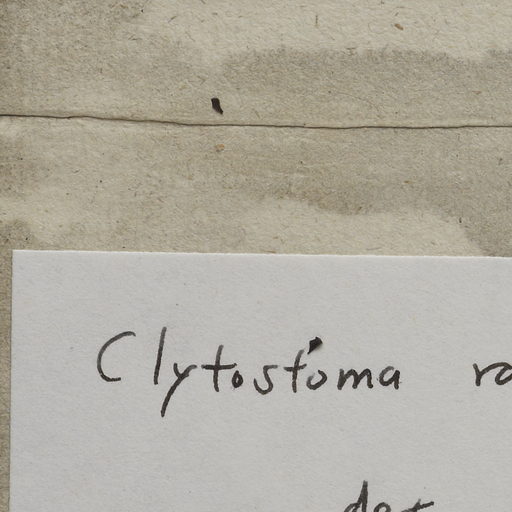 Clytostoma ra
det